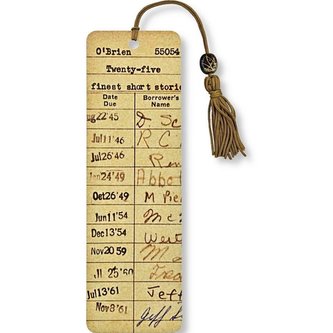 O'Brien 55054
Twenty-five
finest short stori
Date Due Borrower's Name
ug22'45 D. Sc
Jul11'46 R C
Jul26'46
Jan24'49 Abbo
Oct26'49 M Pie
Jun11'54
Dec13'54 West
Nov20 59
JL 25'60
Jul13'61 Jeff
Nov8'61 Jeff S